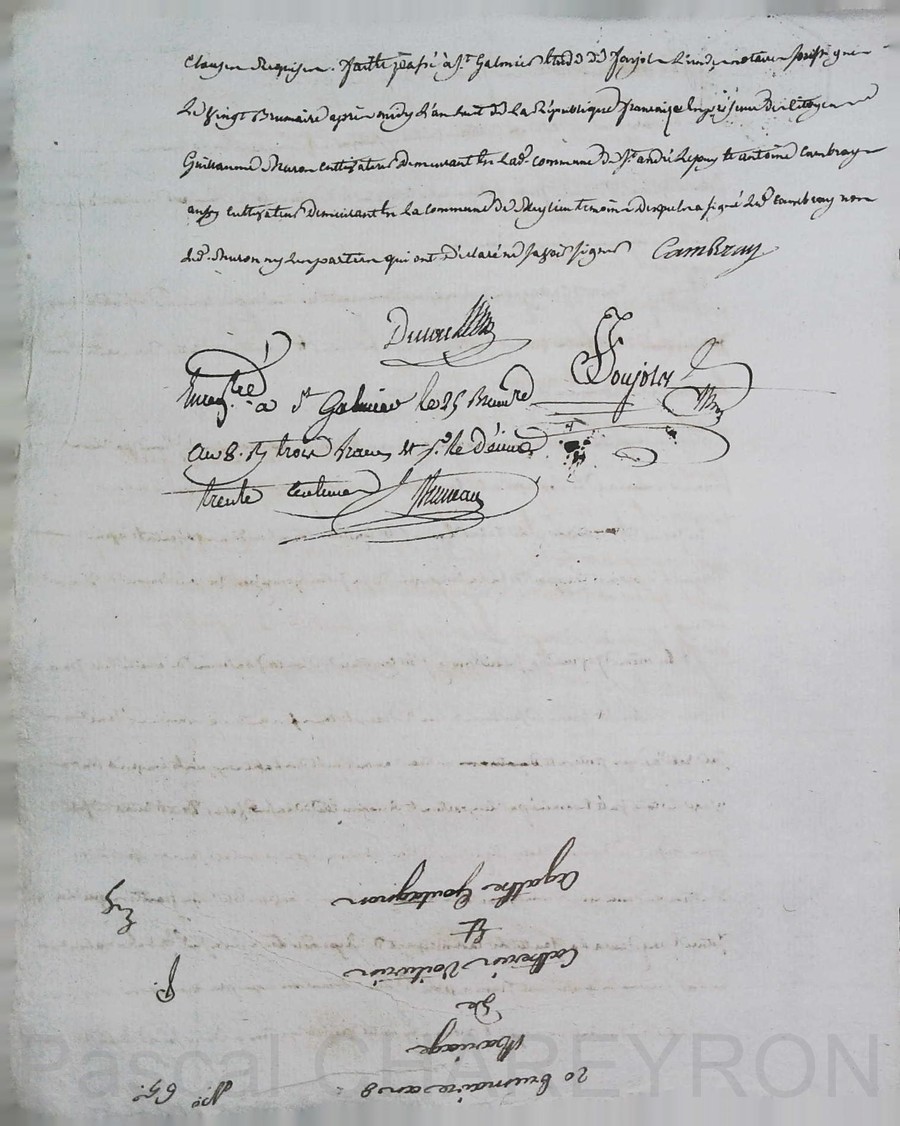 Clauses Requises. fait & passé à St. Galmier étude de foujols l'un des notaires soussignés
Le vingt Brumaire après midy l'an huit de la République française En présence des citoyens
Guillaume cultivateur demeurant En lade. commune de St. andré Lepuy & antoine Cambray
aussy cultivateur demeurant En la commune de Meylieu temoins desquels a signé led. Cambray non
led. ny les parties qui ont déclaré ne savoir signer Cambray
foujols
Enregtré à St Galmier le 25 Brumre
an 8. Rç trois francs & pr. le décime
trente centimes
20 brumaire an 8
No. 65.
Mariage
De
Catherin Voituron
Et
Agathe Goutagneon